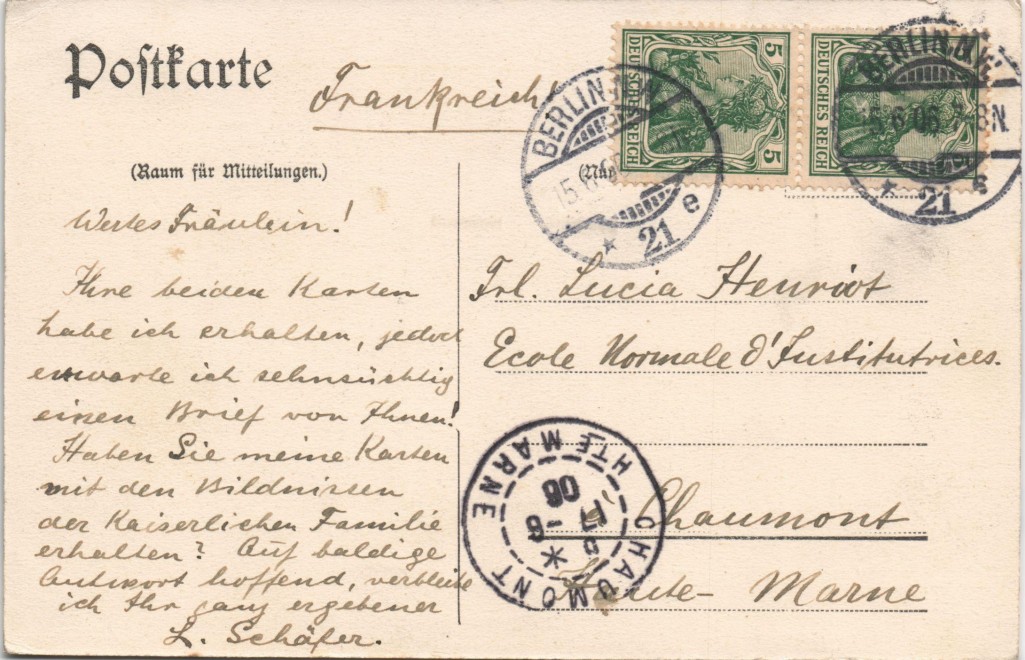 Postkarte
Frankreich!
(Raum für Mitteilungen.)
(Nur
DEUTSCHES REICH
5
5
DEUTSCHES REICH
BERLIN
15.6
*
21 e
BERLIN N.W.
5.6.06
8N.
*
21 e
Wertes Fräulein!
Ihre beiden Karten
habe ich erhalten, jedoch
erwarte ich sehnsüchtig
einen Brief von Ihnen!
Haben Sie meine Karten
mit den Bildnissen
der Kaiserlichen Familie
erhalten? Auf baldige
Antwort hoffend, verbleibe
ich Ihr ganz ergebener
L. Schäfer.
Frl. Lucia Henriot
Ecole Normale d'Institutrices.
Chaumont
Haute-Marne
CHAUMONT
HTE MARNE
17 -6
06